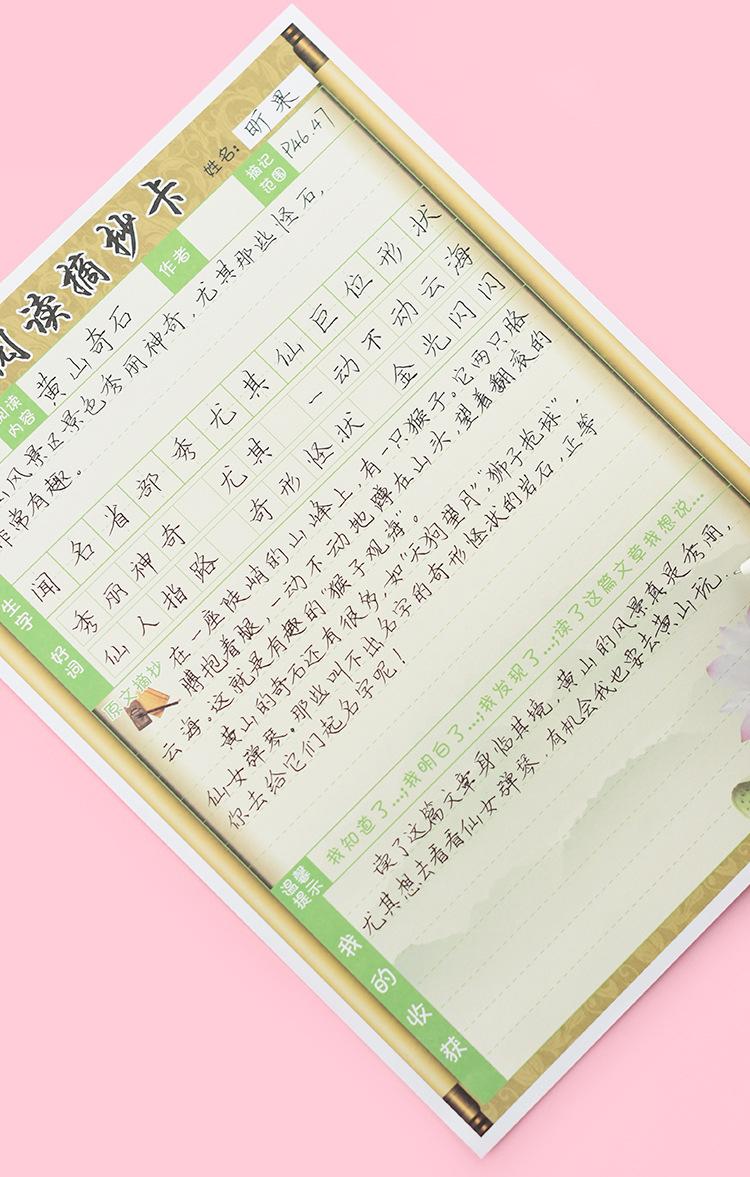 阅读摘抄卡
姓名: 昕果
阅读内容 黄山奇石 作者 摘记范围 P46.47
山风景区景色秀丽神奇，尤其那些怪石，
非常有趣。
生字 闻名省部秀尤其仙巨位形状
好词 秀丽神奇 尤其 一动不动 云海
仙人指路 奇形怪状 金光闪闪
原文摘抄
在一座陡峭的山峰上，有一只猴子。它两只胳
膊抱着腿，一动不动地蹲在山头，望着翻滚的
云海。这就是有趣的“猴子观海”。
黄山的奇石还有很多，如“天狗望月”，“狮子抢球”，
仙女弹琴。那些叫不出名字的奇形怪状的岩石，正等
你去给它们起名字呢！
温馨提示 我知道了...;我明白了...;我发现了...;读了这篇文章我想说...
我的收获
读了这篇文章身临其境，黄山的风景真是秀丽，
尤其想去看看仙女弹琴，有机会我也要去黄山玩...